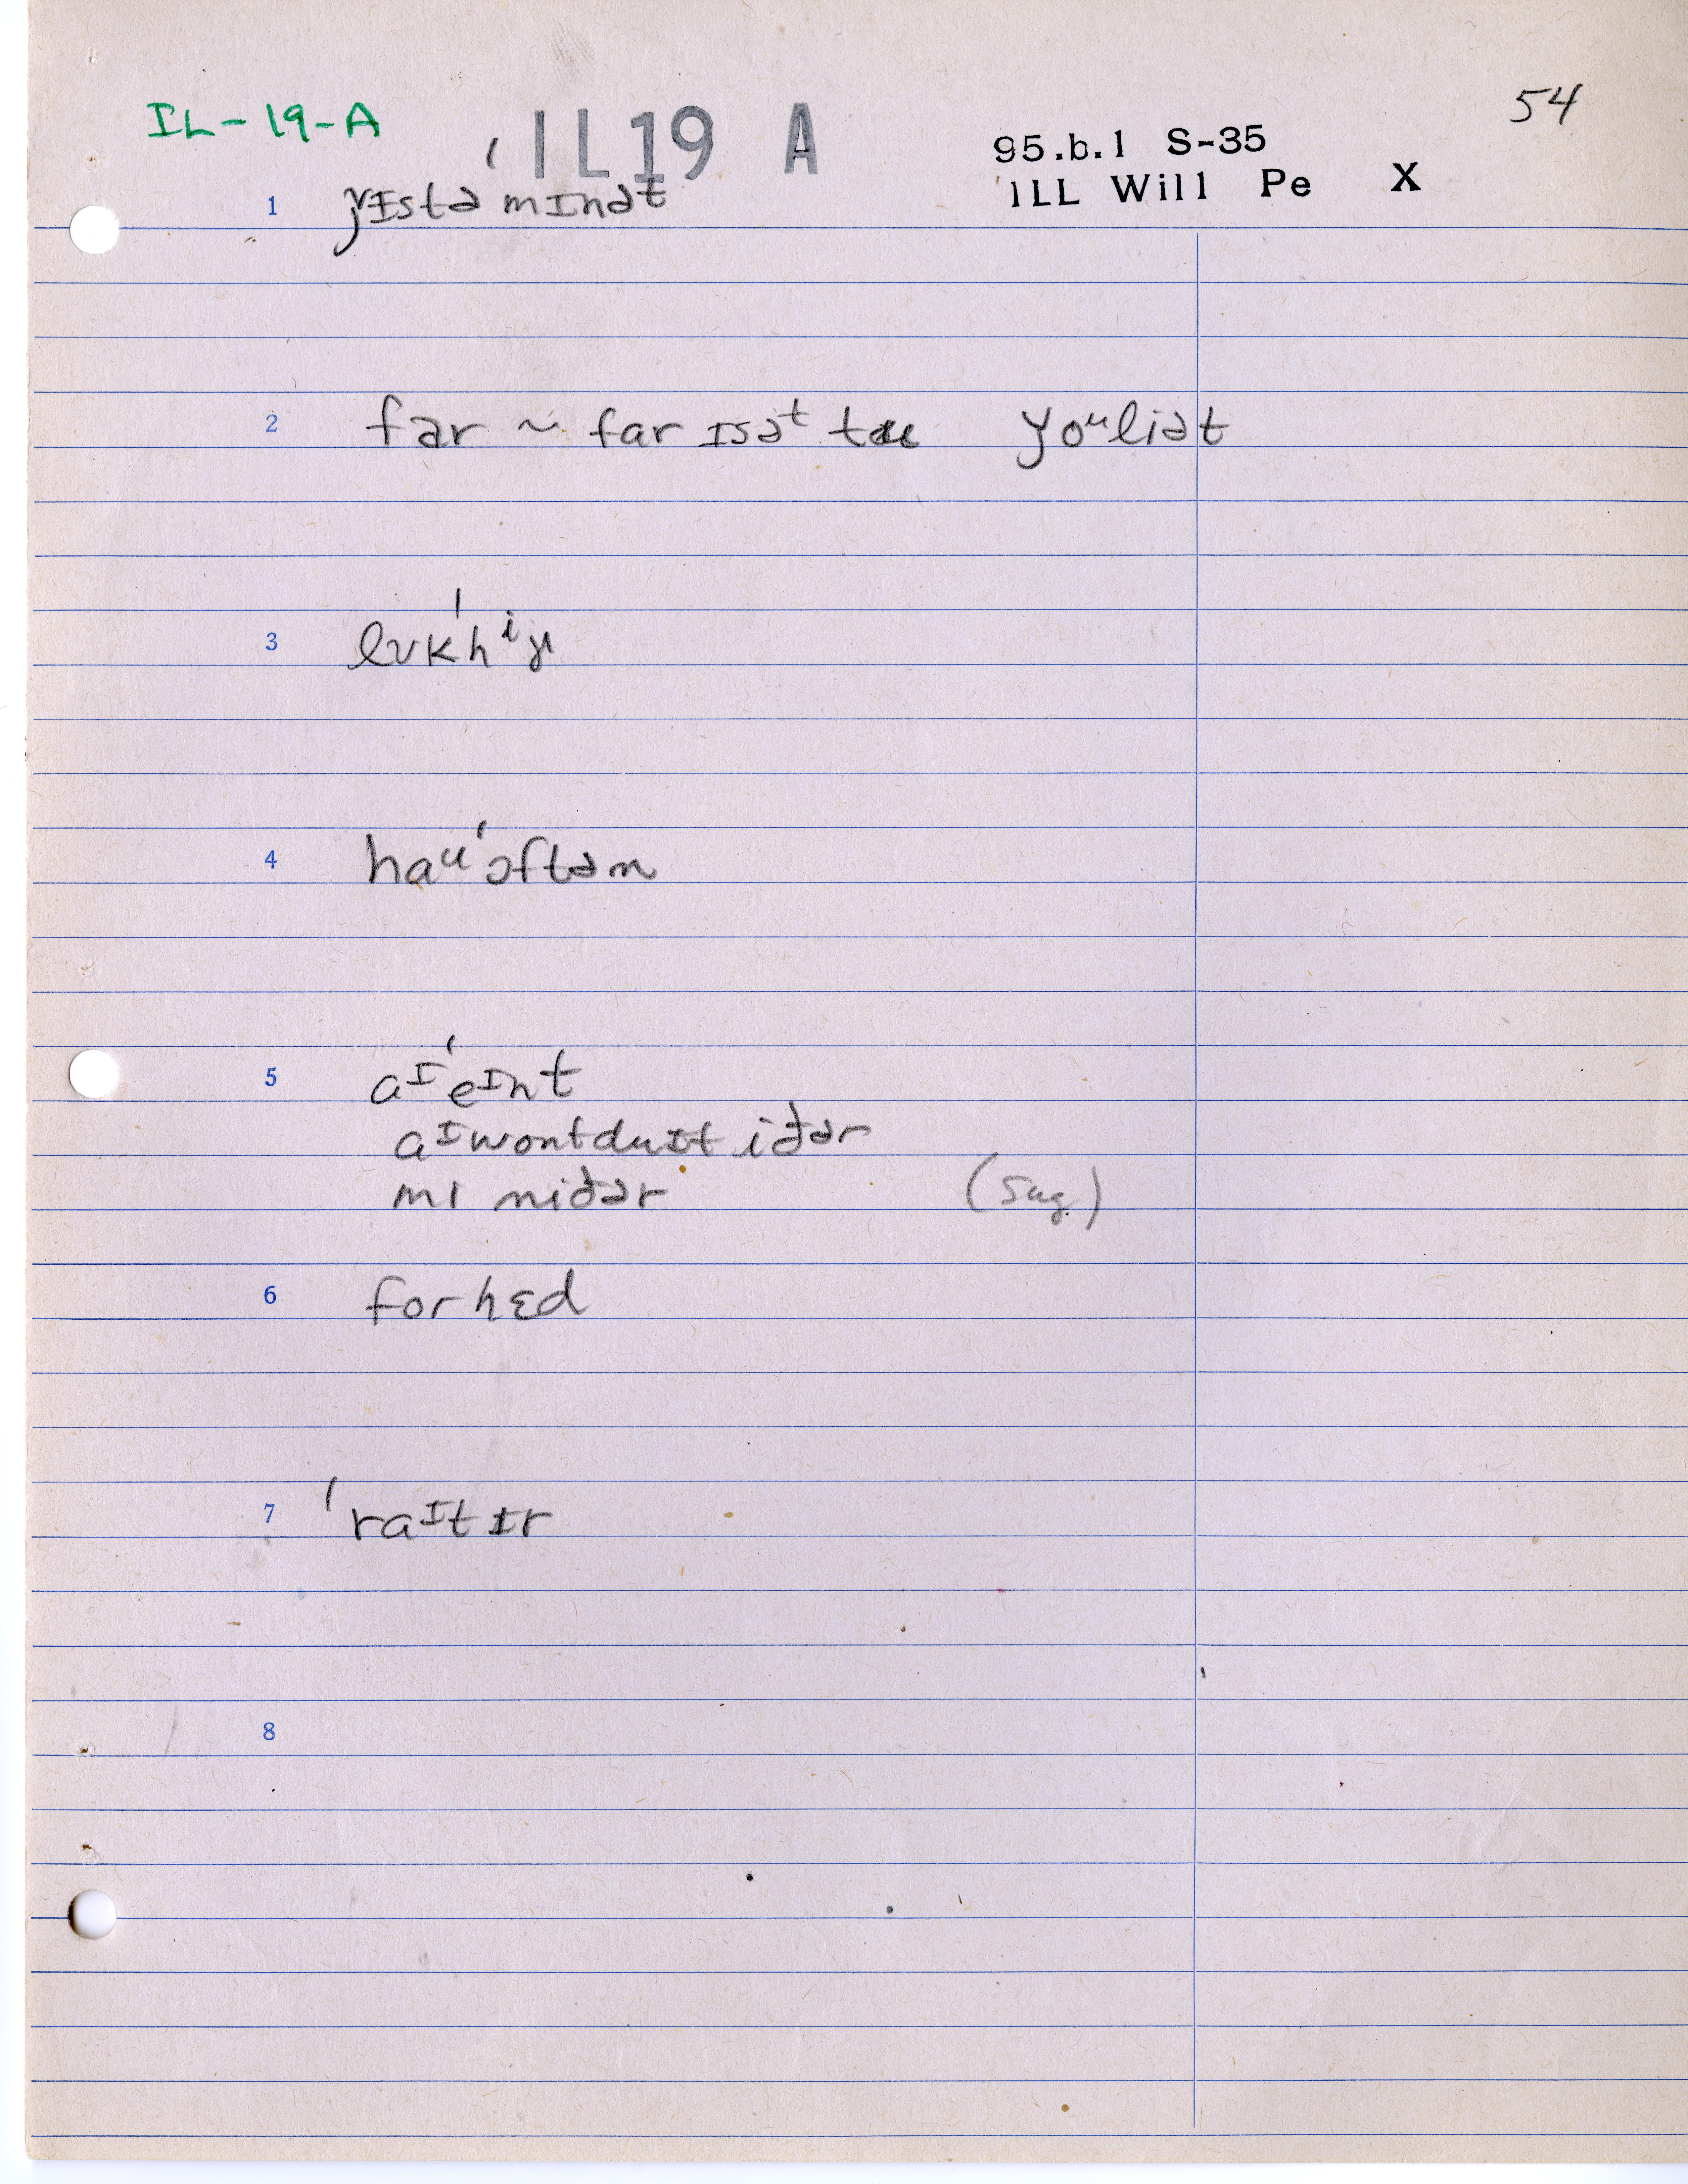 IL-19-A
IL19 A
54
95.b.1 S-35
ILL Will Pe X
1 ɉɪstə ˈmɪnət
2 fər ~ far ɪsəᵗ tu yoᵘliət
3 lʊkˈhⁱɉ
4 haᵘˈɔftən
5 aᴵˈeᴵnt
aᴵwontduɪt iðər
mɪ niðər (sug.)
6 forhɛd
7 ˈraᴵtɪr
8